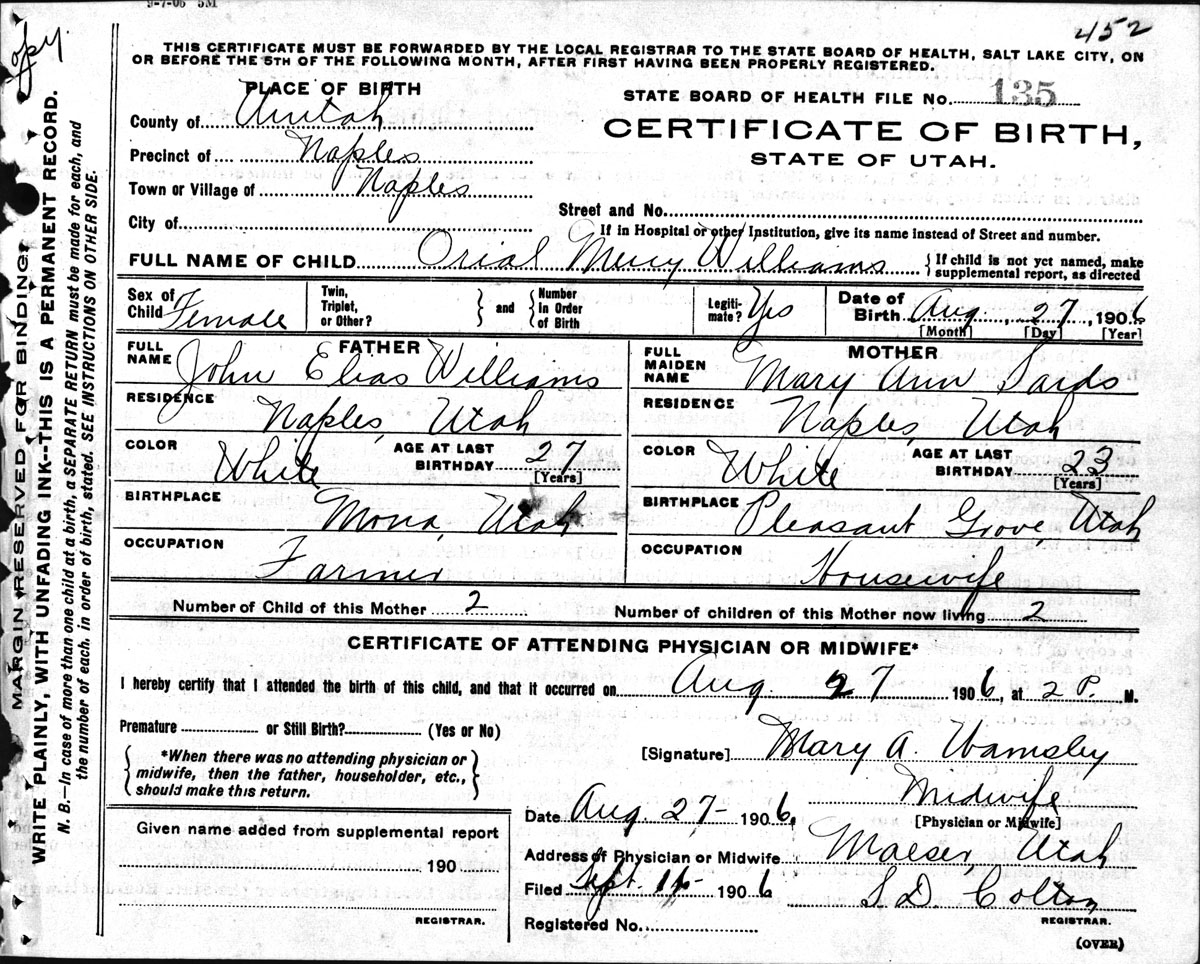 9-7-06 5M
452
opy.
THIS CERTIFICATE MUST BE FORWARDED BY THE LOCAL REGISTRAR TO THE STATE BOARD OF HEALTH, SALT LAKE CITY, ON
OR BEFORE THE 5TH OF THE FOLLOWING MONTH, AFTER FIRST HAVING BEEN PROPERLY REGISTERED.
MARGIN RESERVED FOR BINDING.
WRITE PLAINLY, WITH UNFADING INK--THIS IS A PERMANENT RECORD.
N. B.—In case of more than one child at a birth, a SEPARATE RETURN must be made for each, and
the number of each, in order of birth, stated. SEE INSTRUCTIONS ON OTHER SIDE.
PLACE OF BIRTH
County of Uintah
Precinct of Naples
Town or Village of Naples
City of
STATE BOARD OF HEALTH FILE No. 135
CERTIFICATE OF BIRTH,
STATE OF UTAH.
Street and No.
If in Hospital or other Institution, give its name instead of Street and number.
FULL NAME OF CHILD Orial Mercy Williams { If child is not yet named, make
supplemental report, as directed
Sex of Child Female
Twin, Triplet, or Other? } and { Number in Order of Birth
Legitimate? Yes
Date of Birth Aug., 27, 1906
[Month] [Day] [Year]
FATHER
FULL NAME John Elias Williams
RESIDENCE Naples, Utah
COLOR White AGE AT LAST BIRTHDAY 27
[Years]
BIRTHPLACE Mona, Utah
OCCUPATION Farmer
MOTHER
FULL MAIDEN NAME Mary Ann
RESIDENCE Naples, Utah
COLOR White AGE AT LAST BIRTHDAY 23
[Years]
BIRTHPLACE Pleasant Grove, Utah
OCCUPATION Housewife
Number of Child of this Mother 2 Number of children of this Mother now living 2
CERTIFICATE OF ATTENDING PHYSICIAN OR MIDWIFE*
I hereby certify that I attended the birth of this child, and that it occurred on Aug. 27 1906, at 2 P. M.
Premature or Still Birth? (Yes or No)
{ *When there was no attending physician or
midwife, then the father, householder, etc.,
should make this return. }
[Signature] Mary A. Wamsley
Midwife
[Physician or Midwife]
Date Aug 27- 1906,
Address of Physician or Midwife Maeser, Utah
Filed Sept. 1906 S D. Colton
REGISTRAR.
Registered No.
(OVER)
Given name added from supplemental report
190
REGISTRAR.